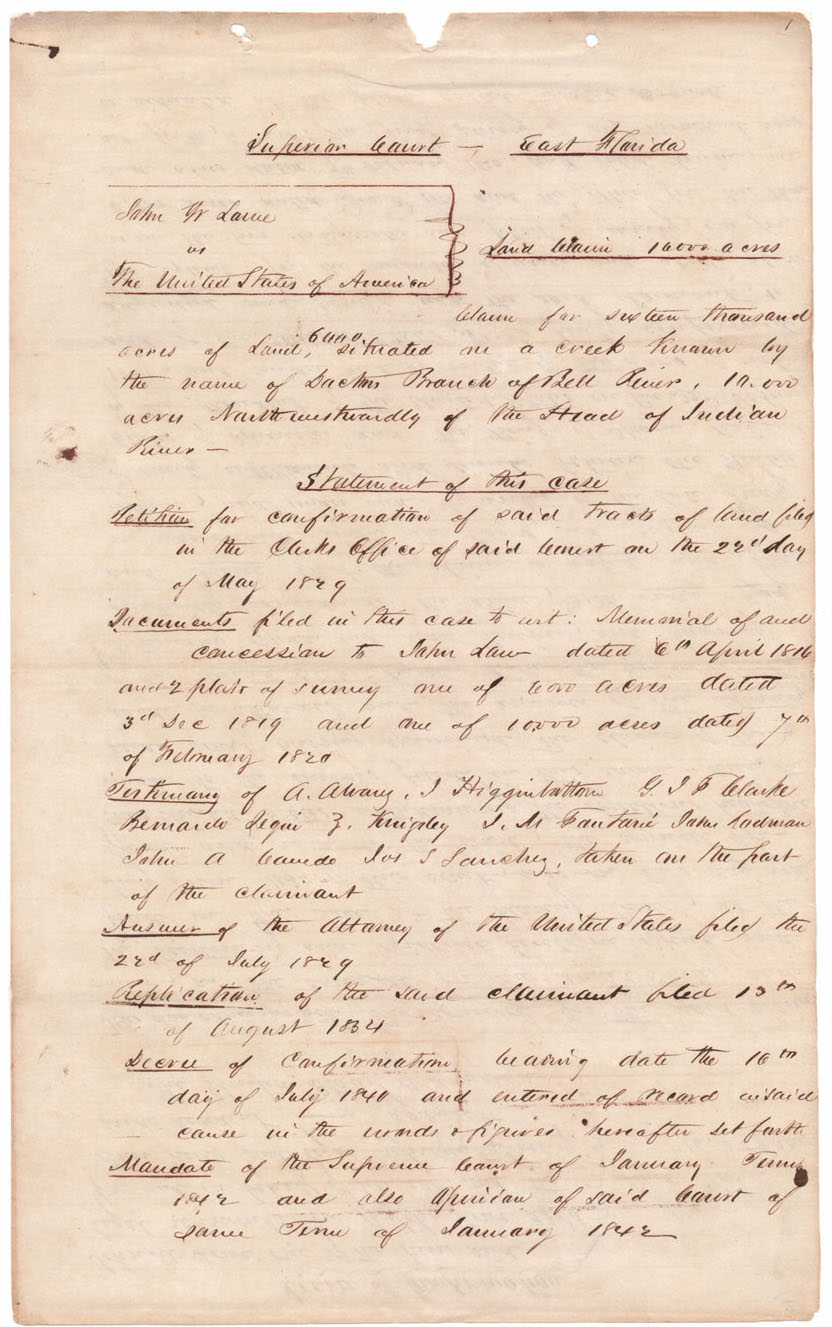 1
Superior Court — East Florida
John W Lowe
vs
The United States of America
Land Claim 16000 acres
Claim for sixteen thousand
acres of Land, 6000 situated on a creek known by
the name of Branch of Bell River, 10.000
acres Northwestwardly of the Head of Indian
River —
Statement of this case
Petition for confirmation of said tracts of land filed
in the Clerks Office of said Court on the 22d day
of May 1829
Documents filed in this case to wit: Memorial of and
concession to John Low dated 6th April 1816
and 2 plats of survey one of 6000 acres dated
3d Dec 1819 and one of 10.000 acres dated 7th
of February 1820
Testimony of A. Alvarez, J Higginbottom G J F Clarke
Bernardo Segui Z. Kingsley J. M Fontané John Rodman
John A Cavedo Jos S Sanchez, taken on the part
of the claimant
Answer of the Attorney of the United States filed the
22d of July 1829
Replication of the said claimant filed 13th
of August 1834
Decree of Confirmation bearing date the 10th
day of July 1840 and entered of record in said
cause in the words & figures hereafter set forth
Mandate of the Supreme Court of January Term
1842 and also Opinion of said Court of
same Term of January 1842